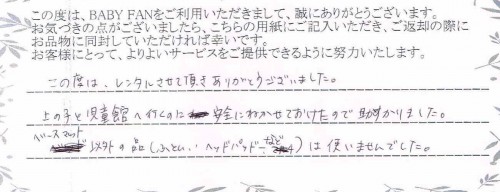 この度は、BABY FANをご利用いただきまして、誠にありがとうございます。
お気づきの点がございましたら、こちらの用紙にご記入いただき、ご返却の際に
お品物に同封していただければ幸いです。
お客様にとって、よりよいサービスをご提供できるように努力いたします。
この度は、レンタルさせて頂きありがとうございました。
上の子と児童館へ行くのに 安全にねかせておけたので助かりました。
ベースマット
以外の品(ふとん、ヘッドパッドなど)は使いませんでした。